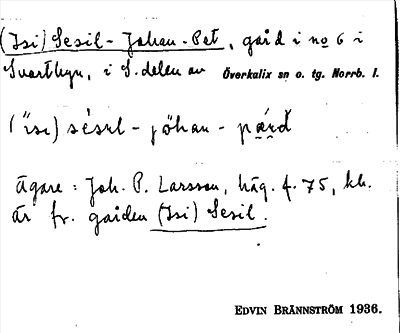 (Isi) Sesil - Johan - Pet, gård i no 6 i
Svartbyn, i S. delen av Överkalix sn o. tg. Norrb. l.
Ägare: Joh. P. Larsson, häg. f. 75, kh.
är fr. gården (Isi) Sesil.
EDVIN BRÄNNSTRÖM 1936.